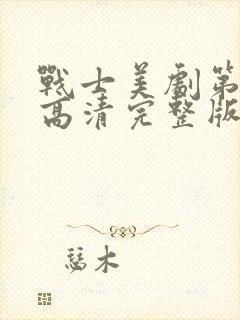 戰士美劇第
高清完整版
慈木